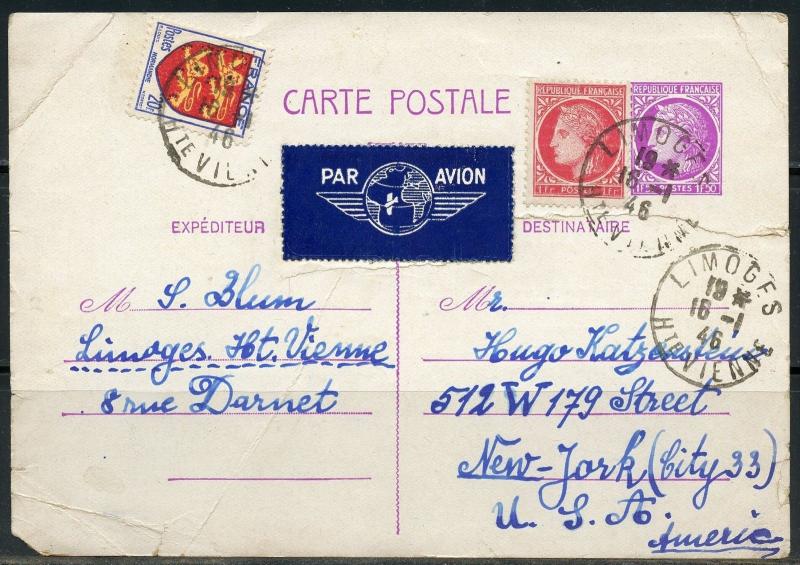 FRANCE
Postes
NORMANDIE
20F
46
HTE VIE
CARTE POSTALE
REPUBLIQUE FRANÇAISE
1Fr POSTES 1Fr
REPUBLIQUE FRANÇAISE
1F50 POSTES 1F50
LIMOGES
19 *
16 -1
46
HTE VIENNE
PAR AVION
EXPÉDITEUR
DESTINATAIRE
LIMOGES
19 *
16 -1
46
HTE VIENNE
M S. Blum
Limoges. Ht. Vienne
8 rue Darnet
Mr.
Hugo Katzenstein
512 W 179 Street
New-York (City 33)
U. S. A.
Americ